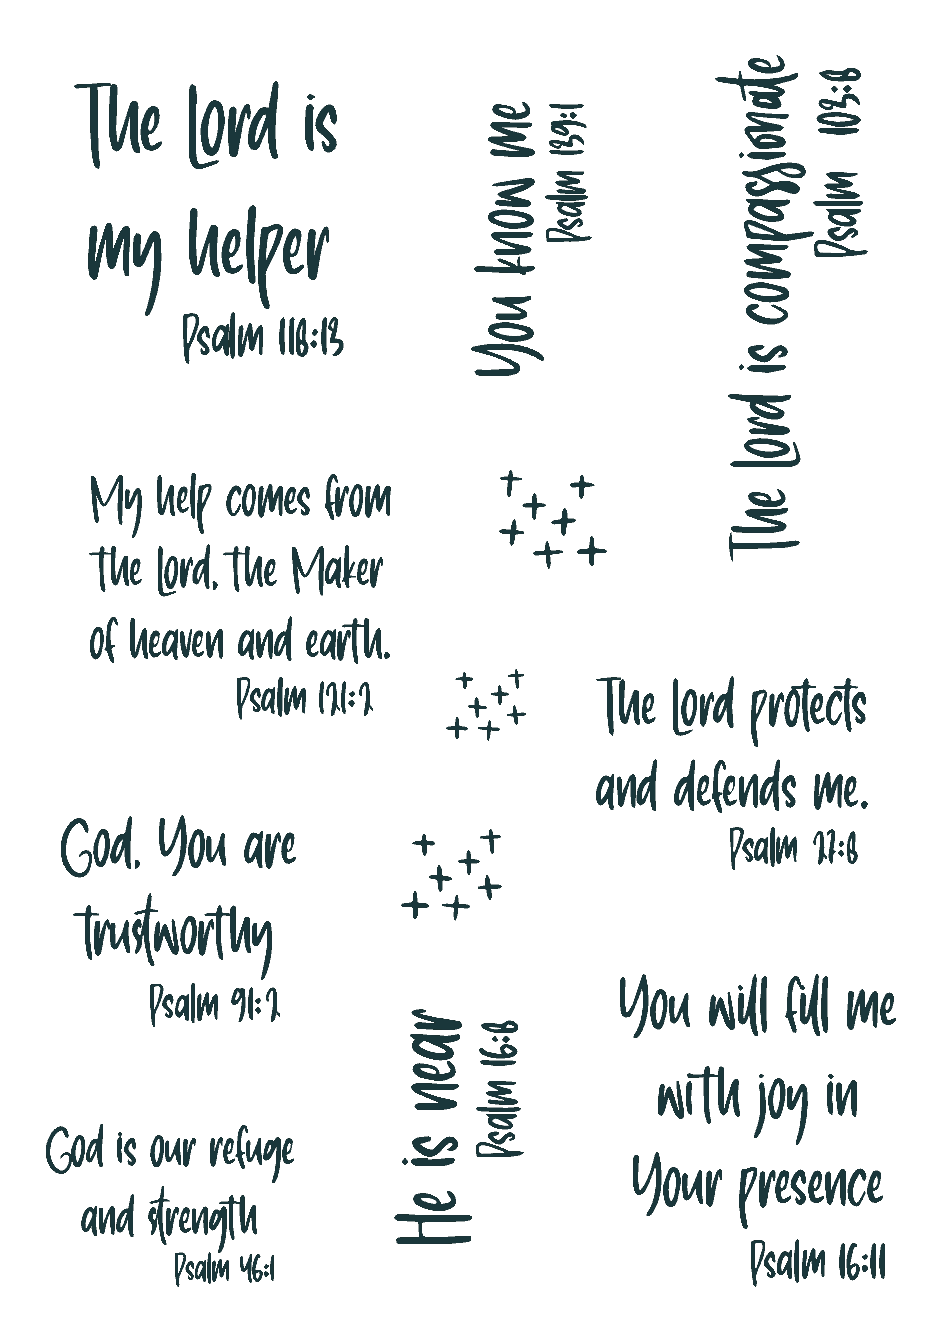 The Lord is
my helper
Psalm 118:13
You know me
Psalm 139:1
The Lord is compassionate
Psalm 103:8
My help comes from
the Lord, the Maker
of heaven and earth.
Psalm 121:2
The Lord protects
and defends me.
Psalm 27:8
God, You are
trustworthy
Psalm 91:2
He is near
Psalm 16:8
You will fill me
with joy in
Your presence
Psalm 16:11
God is our refuge
and strength
Psalm 46:1